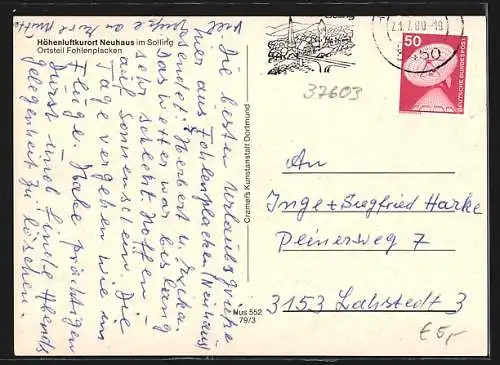 Höhenluftkurort Neuhaus im Solling
Ortsteil Fohlenplacken
Die besten Urlaubsgrüße
hier aus Fohlenplacken (Neuhaus)
sendet Herbert u.
Das Wetter war bis lang
sehr schlecht hoffen
auf Sonnenschein. Die
Tage vergehen wie im
Fluge. Habe prächtigen
Durst und Linde Abends
gelegenheit zu löschen.
viel
Grüße an
Cramers Kunstanstalt Dortmund
Nus 552
79/3
Solling
50
50
DEUTSCHE BUNDESPOST
37603
An
Inge + Siegfried Harke
Peinerweg 7
3153 Lahstedt 3
€ 5,-